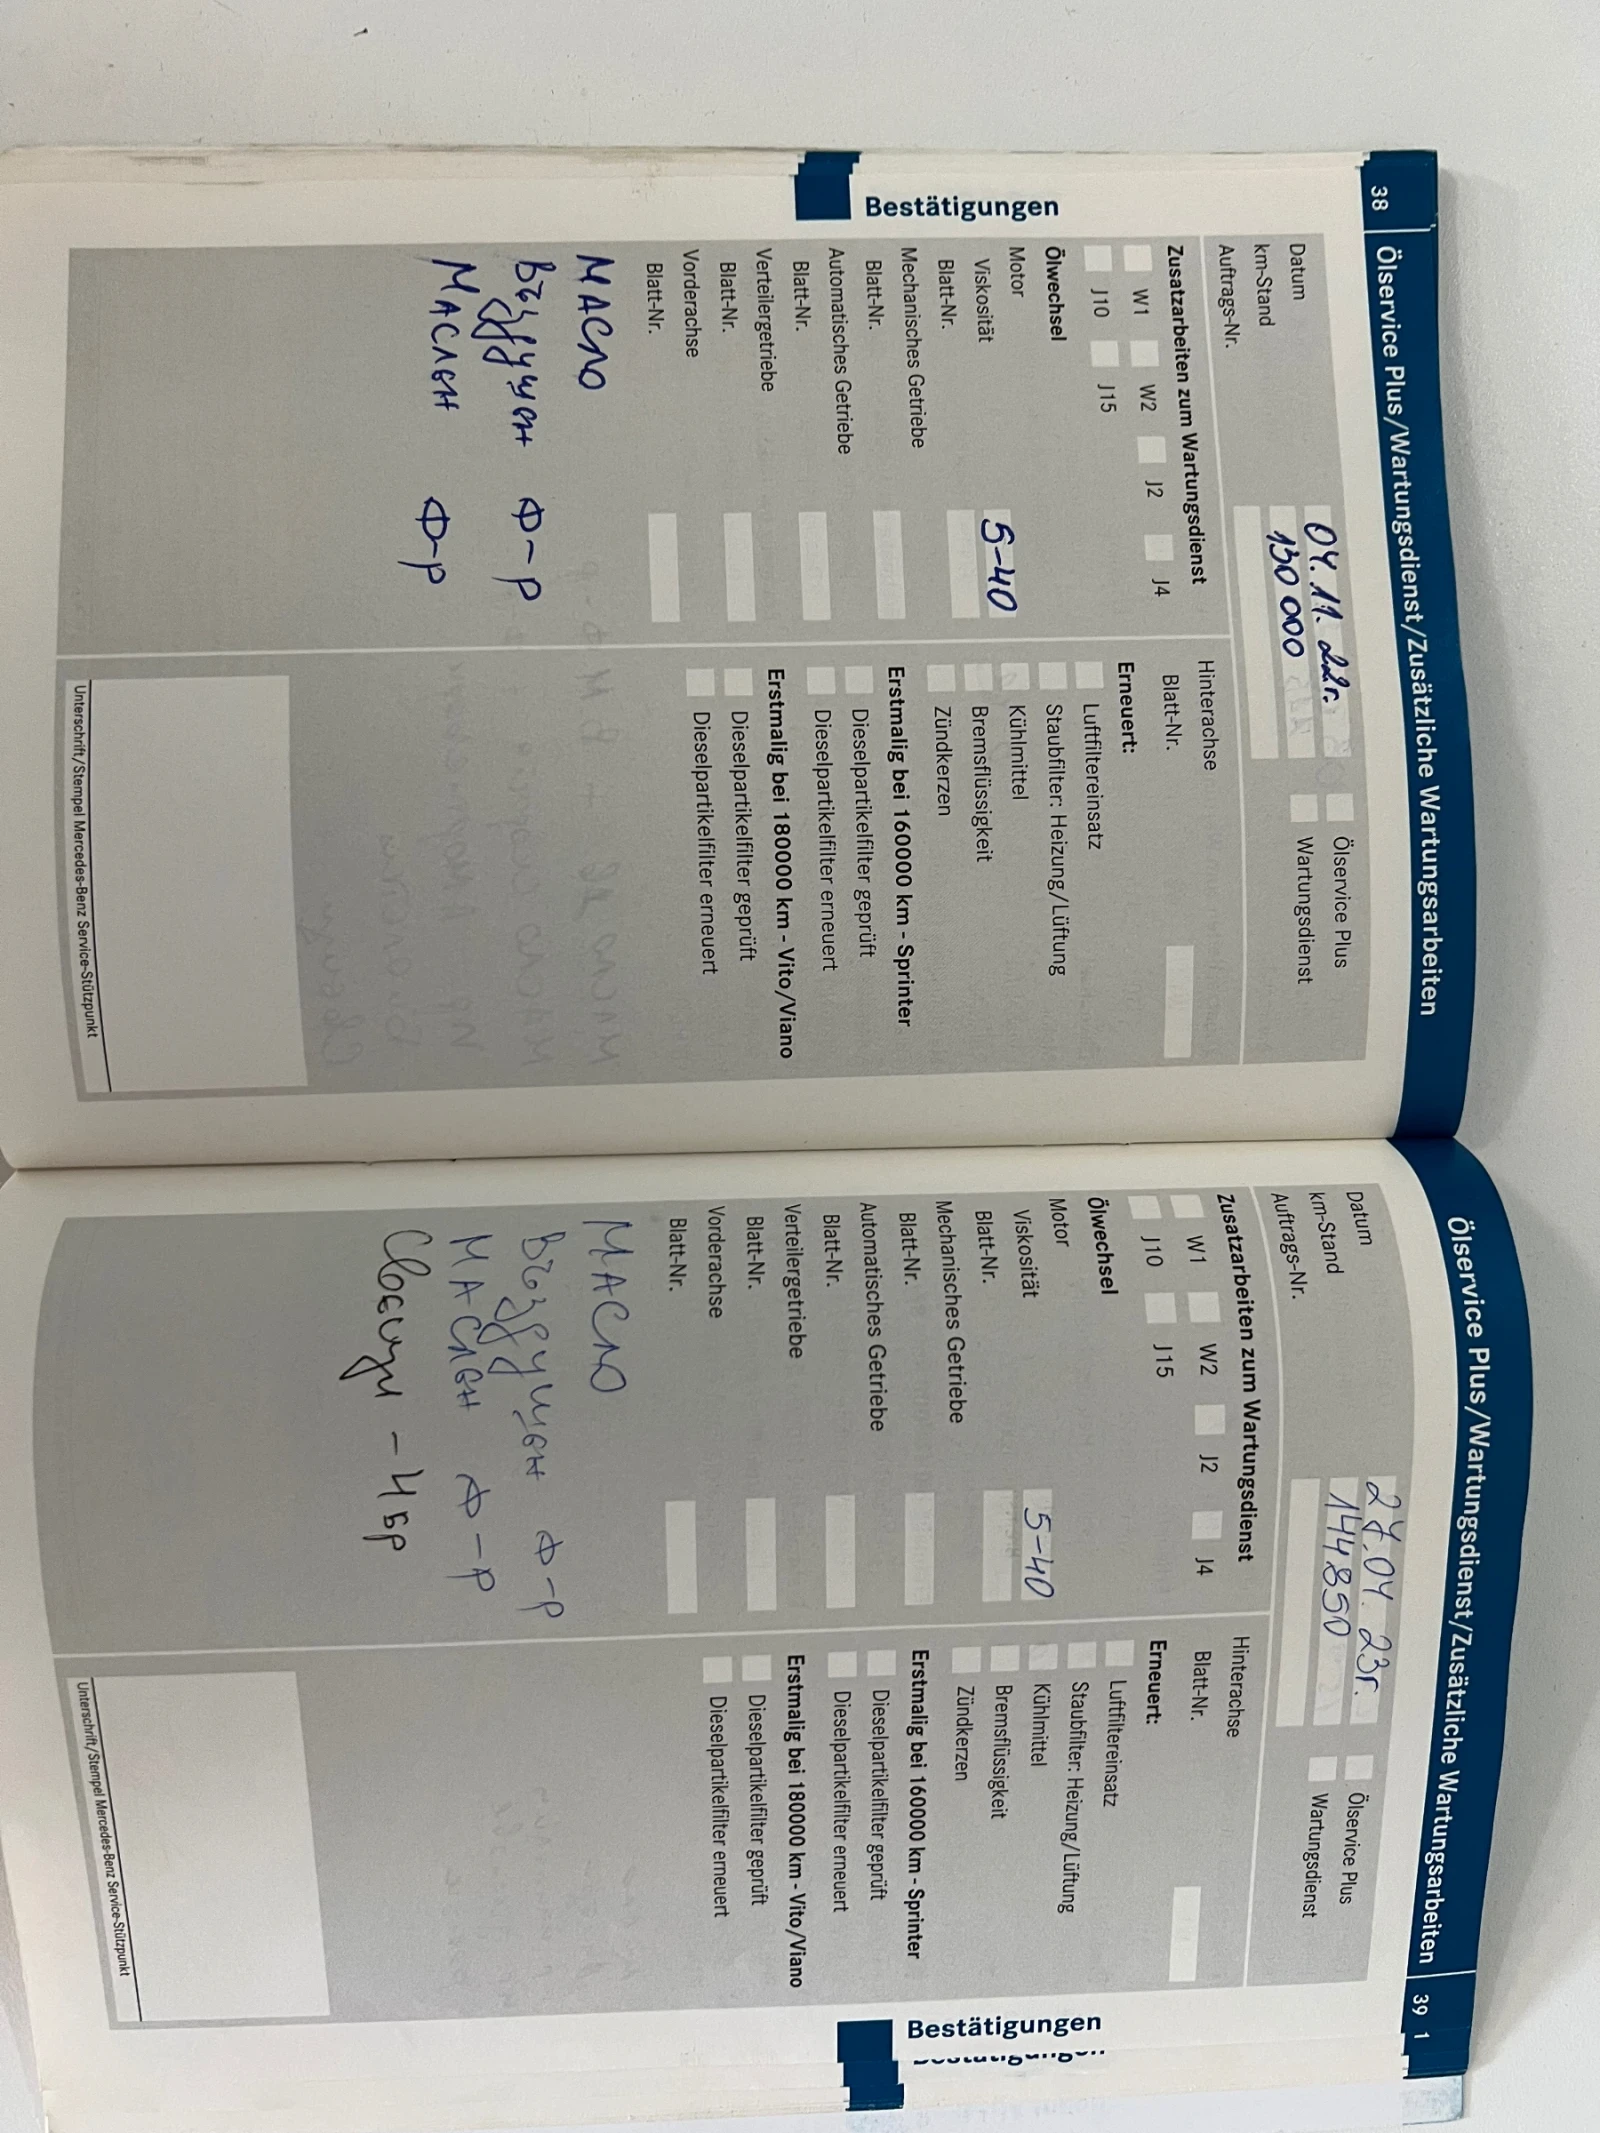 38 Ölservice Plus/Wartungsdienst/Zusätzliche Wartungsarbeiten
Bestätigungen
Datum 04.11.22г. Ölservice Plus
km-Stand 130 000 Wartungsdienst
Auftrags-Nr.
Zusatzarbeiten zum Wartungsdienst
W1 W2 J2 J4
J10 J15
Ölwechsel
Motor
Viskosität 5-40
Blatt-Nr.
Mechanisches Getriebe
Blatt-Nr.
Automatisches Getriebe
Blatt-Nr.
Verteilergetriebe
Blatt-Nr.
Vorderachse
Blatt-Nr.
МАСЛО
Въздушен Ф-р
МАСЛен Ф-р
Hinterachse
Blatt-Nr.
Erneuert:
Luftfiltereinsatz
Staubfilter: Heizung/Lüftung
Kühlmittel
Bremsflüssigkeit
Zündkerzen
Erstmalig bei 160000 km - Sprinter
Dieselpartikelfilter geprüft
Dieselpartikelfilter erneuert
Erstmalig bei 180000 km - Vito/Viano
Dieselpartikelfilter geprüft
Dieselpartikelfilter erneuert
Unterschrift/Stempel Mercedes-Benz Service-Stützpunkt
Ölservice Plus/Wartungsdienst/Zusätzliche Wartungsarbeiten 39 1
Bestätigungen
Datum 27.04.23г. Ölservice Plus
km-Stand 144850 Wartungsdienst
Auftrags-Nr.
Zusatzarbeiten zum Wartungsdienst
W1 W2 J2 J4
J10 J15
Ölwechsel
Motor
Viskosität 5-40
Blatt-Nr.
Mechanisches Getriebe
Blatt-Nr.
Automatisches Getriebe
Blatt-Nr.
Verteilergetriebe
Blatt-Nr.
Vorderachse
Blatt-Nr.
МАСЛО
Въздушен Ф-р
МАСЛен Ф-р
Свещи - 4бр
Hinterachse
Blatt-Nr.
Erneuert:
Luftfiltereinsatz
Staubfilter: Heizung/Lüftung
Kühlmittel
Bremsflüssigkeit
Zündkerzen
Erstmalig bei 160000 km - Sprinter
Dieselpartikelfilter geprüft
Dieselpartikelfilter erneuert
Erstmalig bei 180000 km - Vito/Viano
Dieselpartikelfilter geprüft
Dieselpartikelfilter erneuert
Unterschrift/Stempel Mercedes-Benz Service-Stützpunkt